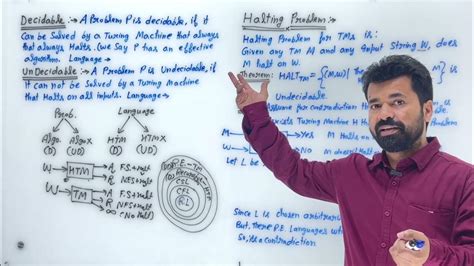 Decidable :→ A Problem P is decidable, if it
can be Solved by a Turing Machine that always
that always Halts. (we Say P has an effective
algorithm. Language →
UnDecidable :→ A Problem P is Undecidable, if
it can not be Solved by a Turing Machine
that Halts on all inputs. Language →
Prob. Language
Algo Algo X HTM HTM X
(D) (UD) (D) (UD)
W → HTM → A F.S + Halt
R NFS + Halt
W → TM → A FS + Halt
R NFS + Halt
∞ (No Halt)
CFL
RL
Halting Problem :→
Halting Problem for TMs is:
Given any TM M and any input String W, does
M halt on W.
Theorem: HALT
Undecidable.
Assume for contradiction
exists Turing Machine H
M → Yes M Halts
W → No M doesn't Halt
Let L be
Since L is chosen arbitrar
But, There R.E. Languages
So, its a contradiction